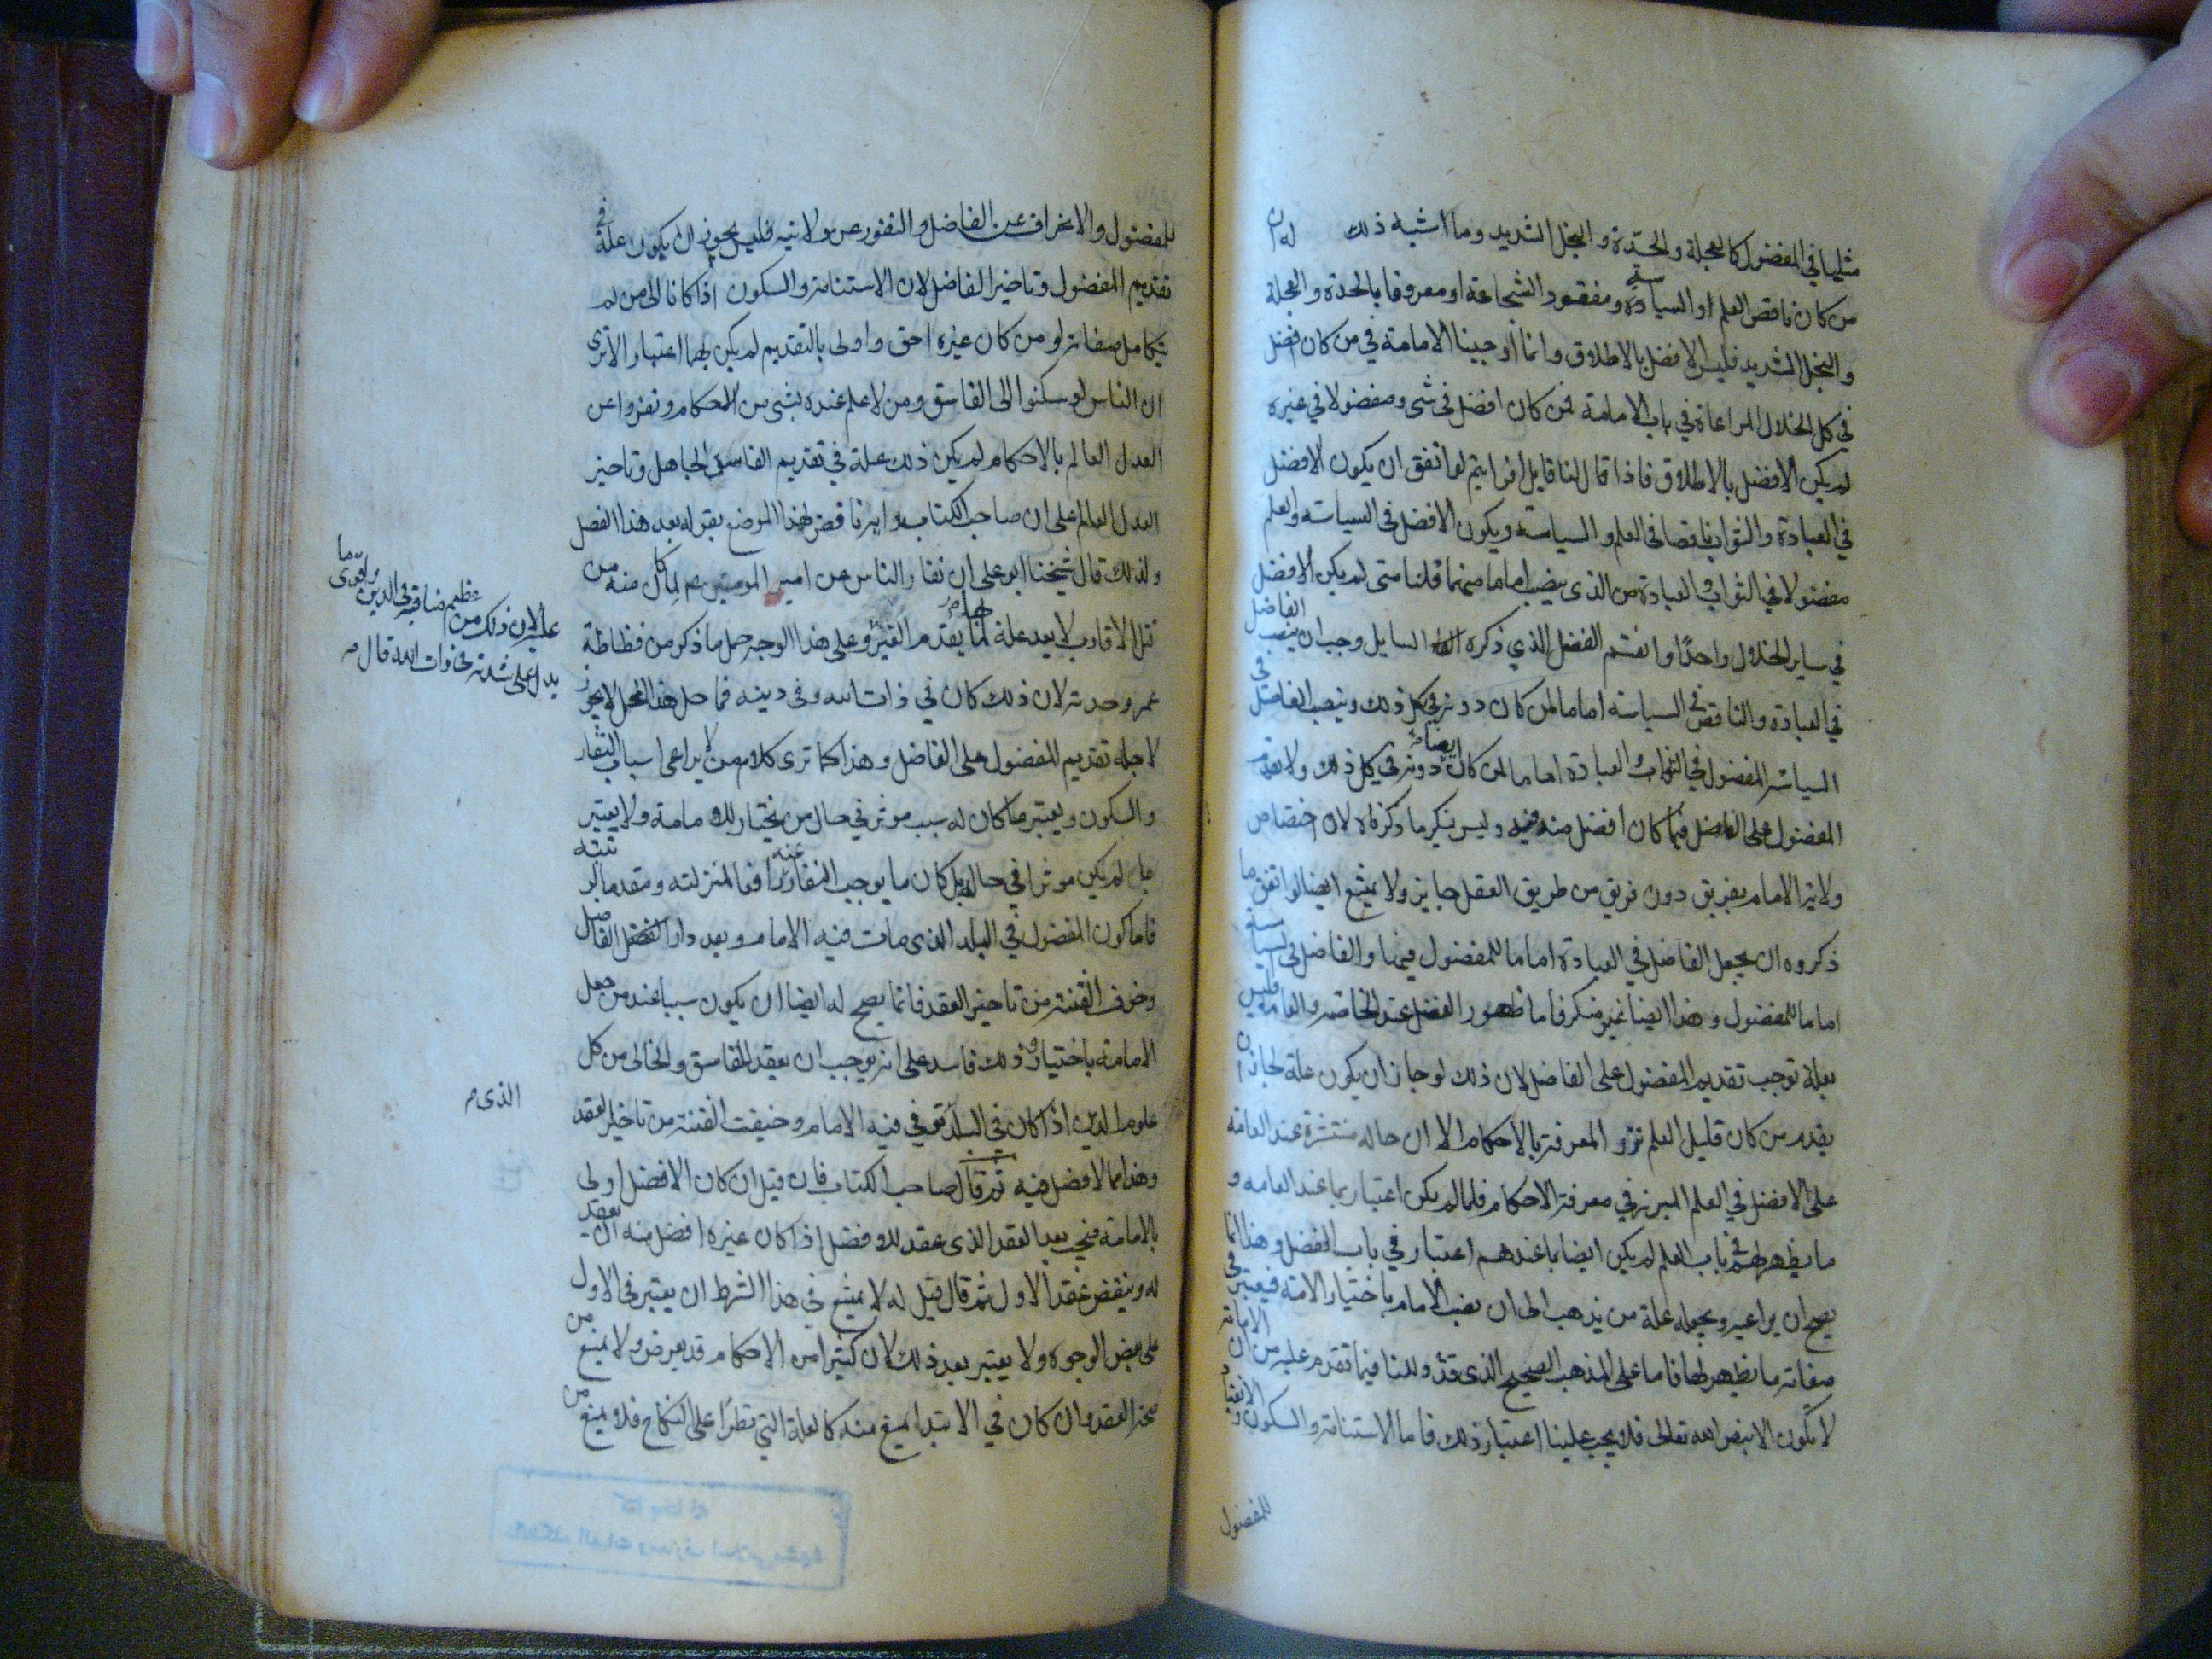 مثلها في المفضول كالعجلة والحدّة والبخل الشديد وما اشبه ذلك لان
من كان ناقص العلم او السياسة ومفقود الشجاعة او معروفا بالحدة والعجلة
والبخل الشديد فليس الافضل بالاطلاق وانما اوجبنا الامامة في من كان افضل
في كل الخلال المراعاة في باب الامامة فمن كان افضل في شى ومفضولا في غيره
لم يكن الافضل بالاطلاق فاذا قال لنا قايل افرايتم لو اتفق ان يكون الافضل
في العبادة والثواب ناقصا في العلم والسياسة ويكون الافضل في السياسة والعلم
مفضولا في الثواب والعبادة من الذى ينصب اماما منهما قلنا متى لم يكن الافضل
في ساير الخلال واحدًا وانقسم الفضل الذي ذكره السايل وجب ان ينصب الفاضل
في العبادة والناقص في السياسة اماما لمن كان دونه في كل ذلك وينصب الفاضل في
السياسة المفضول في الثواب والعبادة اماما لمن كان ايضا دونه في كل ذلك ولا يقدم
المفضول على الفاضل فيما كان افضل منه فيه وليس ننكر ما ذكرناه لان اختصاص
ولاية الامام بفريق دون فريق من طريق العقل جايز ولا يمتنع ايضا لو اتفق ما
ذكروه ان يجعل الفاضل في العبادة اماما للمفضول فيها والفاضل في السياسة
اماما للمفضول وهذا ايضا غير منكر فاما ظهور الفضل عند الخاصة والعامة فليس
بعلة توجب تقديم المفضول على الفاضل لان ذلك لو جاز ان يكون علة لجاز ان
يقدم من كان قليل العلم نزر المعرفة بالاحكام الا ان حاله منتشرة عند العامة
على الافضل في العلم المبرز في معرفة الاحكام فلما لم يكن اعتبار بما عند العامه و
ما يظهر لهم في باب العلم لم يكن ايضا بما عندهم اعتبار في باب الفضل وهذا انما
يصح ان يراعيه ويجعله علة من يذهب الى ان نصب الامام باختيار الامة فيعتبر في
صفاته ما يظهر لها فاما على المذهب الصحيح الذى قد دللنا فيما تقدم عليه من ان الامامة
لا تكون الا بنص الله تعالى فلا يجب علينا اعتبار ذلك فاما الاستنامة والسكون والانقياد
للمفضول
للمفضول والانحراف عن الفاضل والنفور عن ولايته فليس يجوز ان يكون علة في
تقديم المفضول وتاخير الفاضل لان الاستنامة والسكون اذا كانا الى من لم
يتكامل صفاته او من كان غيره احق واولى بالتقديم لم يكن بهما اعتبار الا ترى
ان الناس لو سكنوا الى الفاسق ومن لا علم عنده بشى من الاحكام ونفروا عن
العدل العالم بالاحكام لم يكن ذلك علة في تقديم الفاسق الجاهل وتاخير
العدل العالم على ان صاحب الكتاب مناقض لهذا الموضع بقوله بعد هذا الفصل
ولذلك قال شيخنا ابو على ان نفار الناس عن امير المومنين ع م لما كان منه من
قتل الاقارب لا يعد علة لها يقدم الغير وعلى هذا الوجه حمل ما ذكر من فظاظة
عليه لان ذلك من عظيم مناقبه في الدين واقوى ما
يدل على شدته في ذات الله قال
عمر وحدته لان ذلك كان في ذات الله وفى دينه فما حل هذا المحل لا يجوز
لاجله تقديم المفضول على الفاضل وهذا كما ترى كلام من لا يراعى اسباب النفار
والسكون ويعتبر ما كان له سبب موثر في حال من يختار للامامة ولا يعتبر
ما لم يكن موثرا في حاله بل كان ما يوجب النفار عنه رافعا لمنزلته ومقدما لرتبته
فاما كون المفضول في البلد الذى مات فيه الامام وبعد دار الفاضل
وخوف الفتنة من تاخير العقد فانما يصح له ايضا ان يكون سببا عند من جعل
الامامة باختيار وذلك فاسد على انه يوجب ان يعقد للفاسق والخالى من كل
علوم الدين اذا كان في البلد الذى توفي فيه الامام وخيفت الفتنة من تاخير العقد
وهذا مما لا فضل فيه ثم قال صاحب الكتاب فان قيل ان كان الافضل اولى
بالامامة فيجب بعد العقد الذى عقد له وفضل اذا كان غيره افضل منه ان يعقد
له وينقض عقد الاول ثم قال قيل له لا يمتنع في هذا الشرط ان يعتبر في الاول
على بعض الوجوه ولا يعتبر بعد ذلك لان كثيرا من الاحكام قد يعرض ولا يمنع من
صحة العقد وان كان في الابتدا يمنع منه كالعلة التي تطرا على النكاح فلا يمنع من